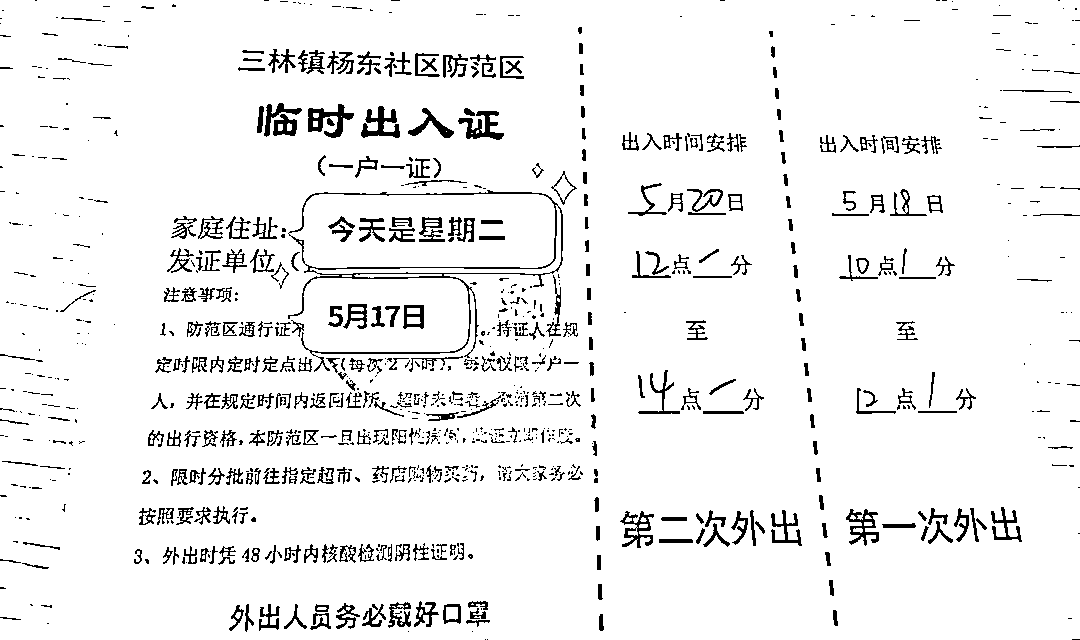 三林镇杨东社区防范区
临时出入证
（一户一证）
家庭住址:
发证单位（
今天是星期二
5月17日
注意事项:
1、防范区通行证不 。持证人在规
定时限内定时定点出入（每次 2 小时），每次仅限一户一
人，并在规定时间内返回住所，超时未归者，取消第二次
的出行资格，本防范区一旦出现阳性病例，此证立即作废。
2、限时分批前往指定超市、药店购物买药，请大家务必
按照要求执行。
3、外出时凭 48 小时内核酸检测阴性证明。
外出人员务必戴好口罩
出入时间安排
5月20日
12点/分
至
14点/分
第二次外出
出入时间安排
5月18日
10点/分
至
12点/分
第一次外出